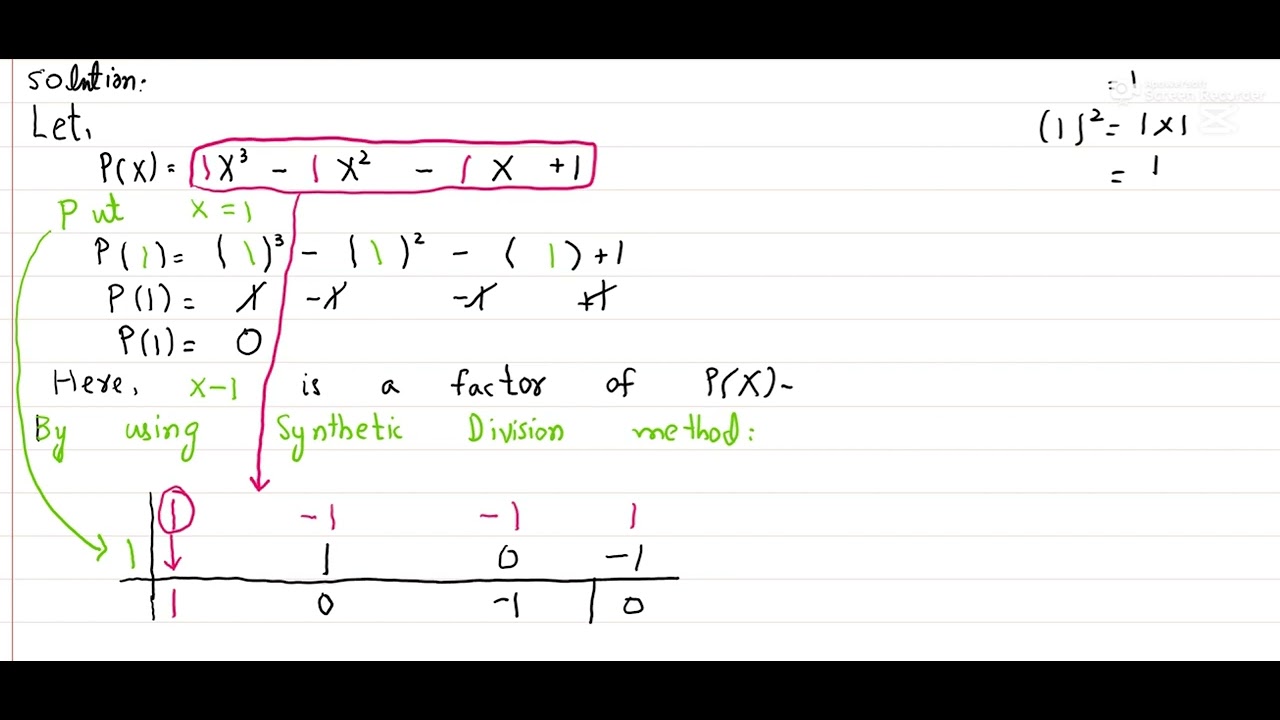 Solution:
Let,
P(X) = 1X³ - 1X² - 1X + 1
Put x = 1
P(1) = (1)³ - (1)² - (1) + 1
P(1) = 1 - 1 - 1 + 1
P(1) = 0
Here, x-1 is a factor of P(X)-
By using Synthetic Division method:
1 -1 -1 1
1 1 0 -1
1 0 -1 0
= 1
(1)² = 1x1
= 1
Apowersoft
Screen Recorder